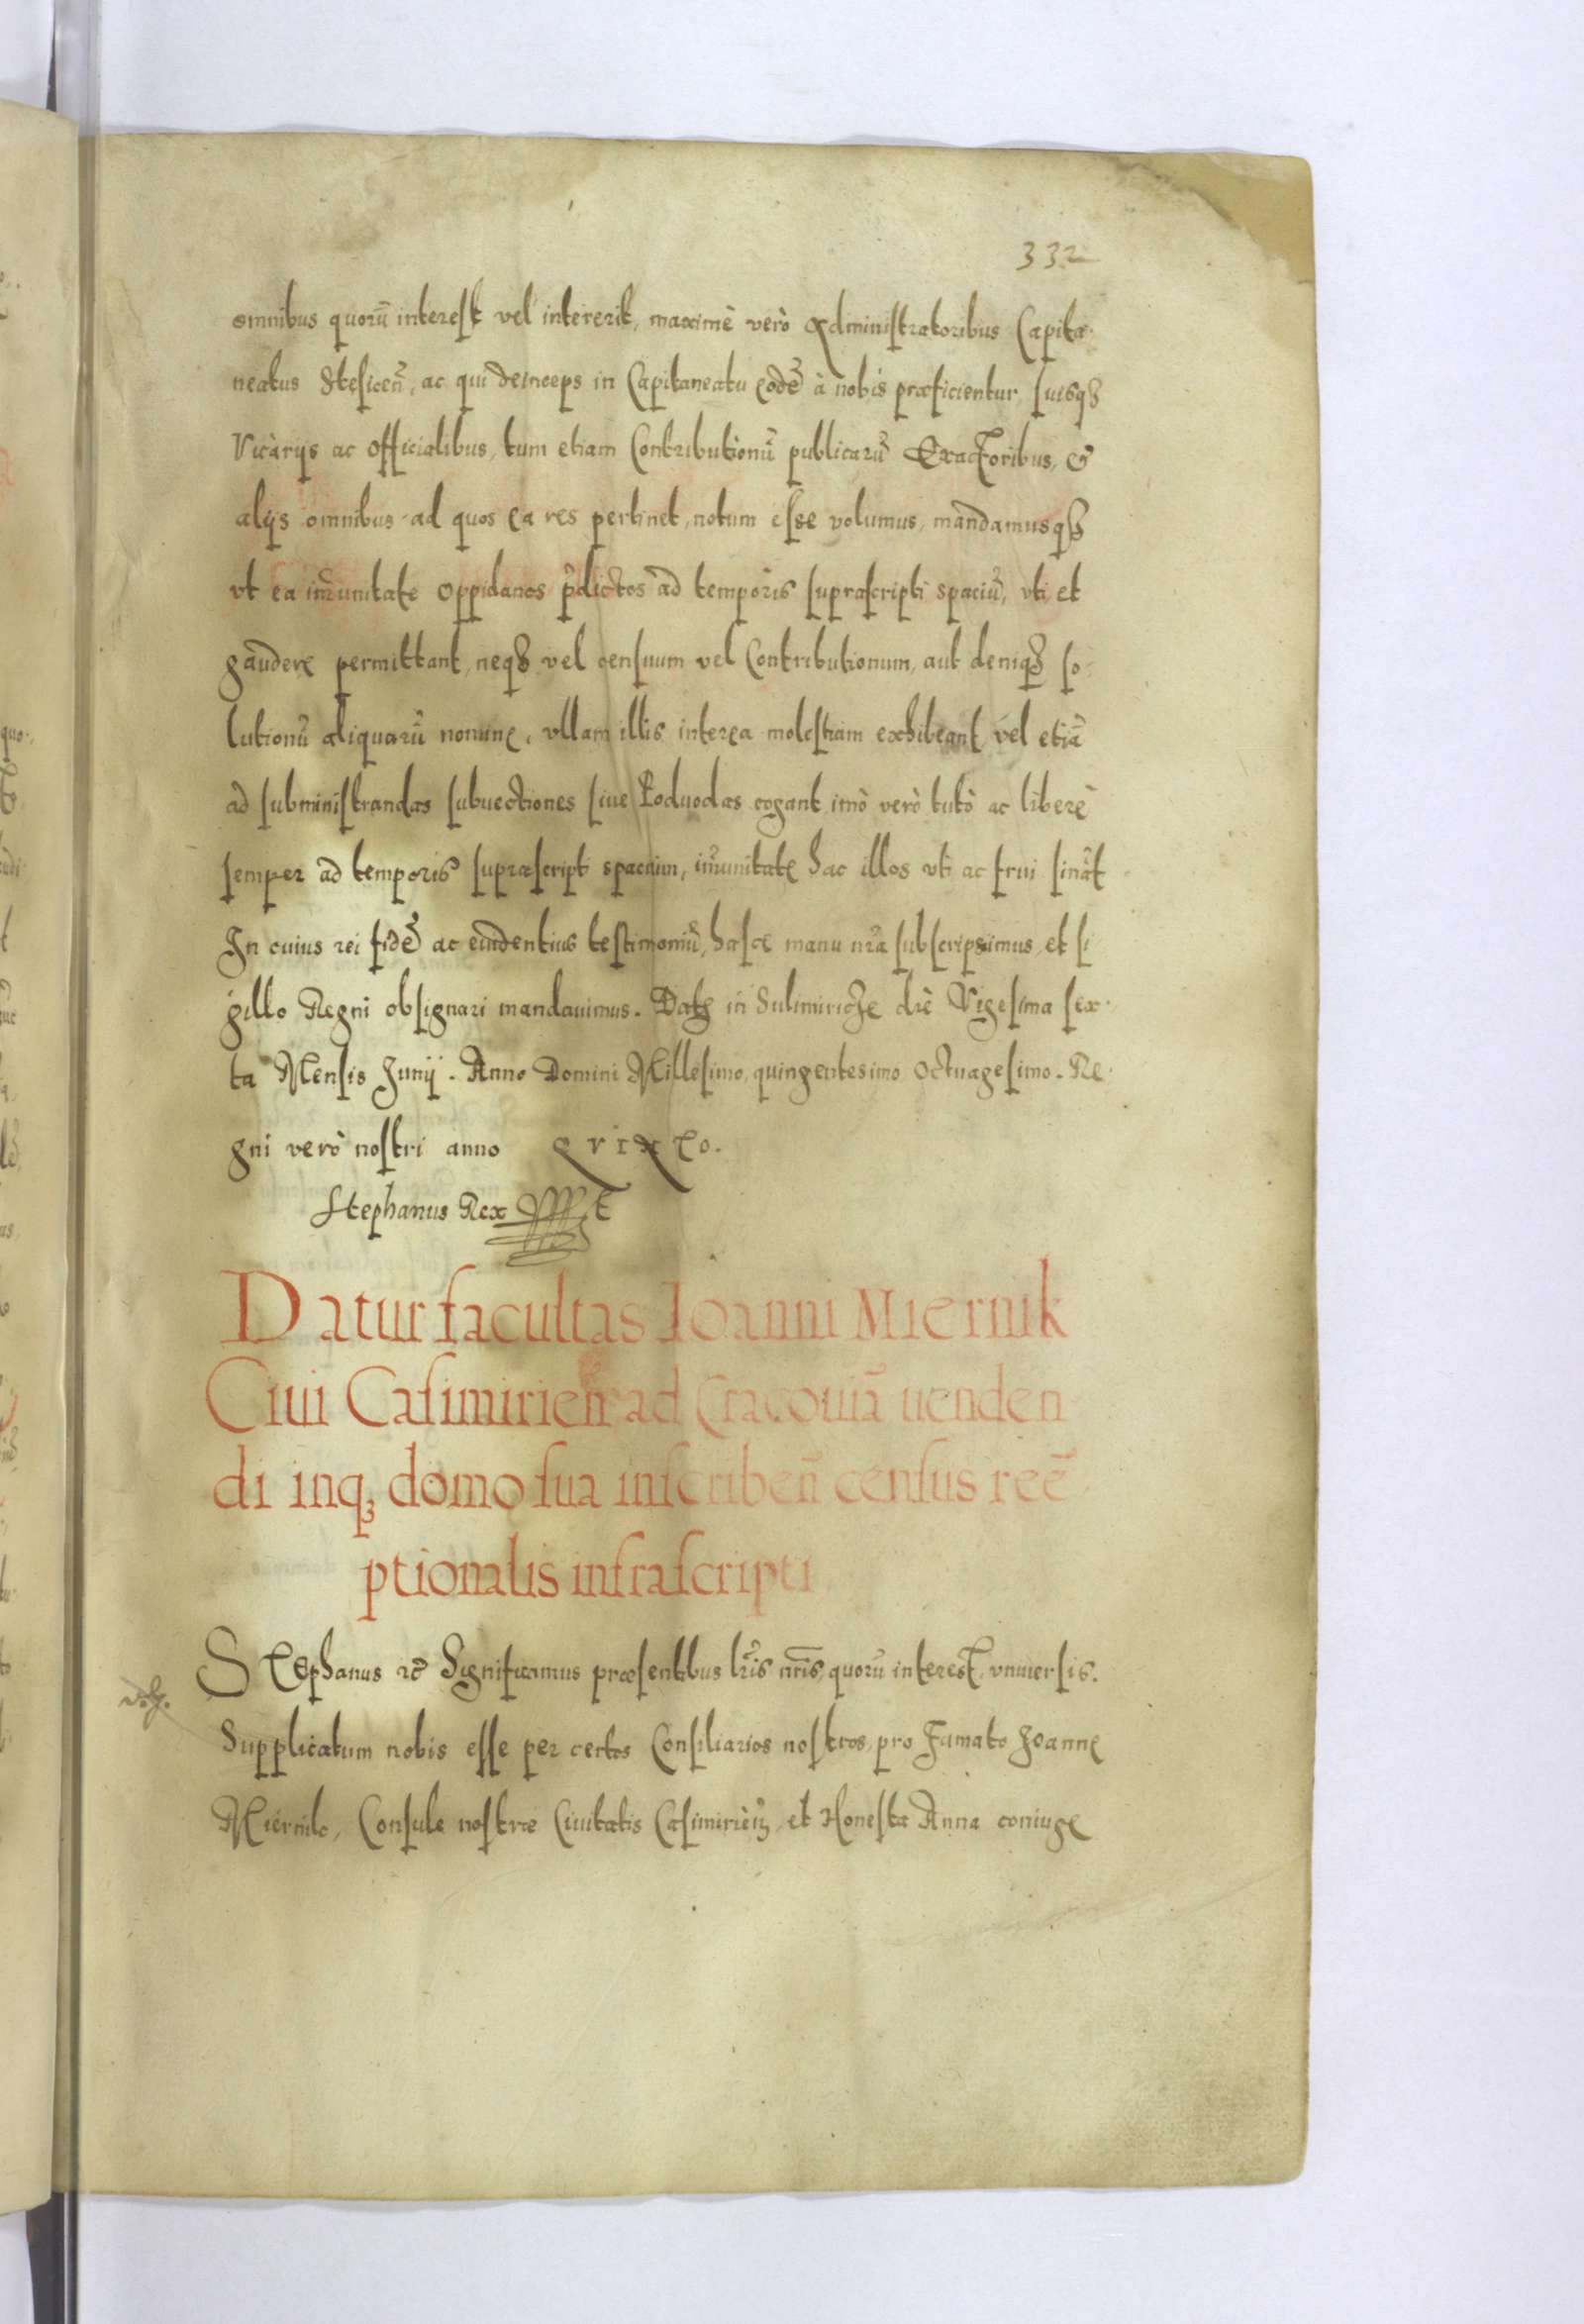 332
omnibus quorū interest vel intererit, maximè verò Administratoribus Capita-
neatus Stesicen̄, ac qui deinceps in Capitaneatu eodē à nobis præficientur suisqȝ
Vicarijs ac Officialibus, tum etiam Contributionū publicarū Exactoribus, &
alijs omnibus ad quos ea res pertinet, notum esse volumus, mandamusqȝ
vt ea im̄unitate oppidanos p̄dictos ad temporis suprascripti spaciū, vti et
gaudere permittant, neqȝ vel censuum vel Contributionum, aut deniqȝ so-
lutionū aliquarū nomine, vllam illis interea molestiam exhibeant vel etiā
ad subministrandas subuectiones siue Poduodas cogant imò verò tutò ac liberè
semper ad temporis suprascripti spacium, im̄unitate hac illos vti ac frui sināt
In cuius rei fidē ac euidentius testimoniū, hasce manu nr̄a subscripsimus et si
gillo Regni obsignari mandauimus. Datȝ in Sulimiricze die Vigesima sex-
ta Mensis Junij. Anno Domini Millesimo quingentesimo Octuagesimo. Re-
gni verò nostri anno QVINTO.
Stephanus Rex
Datur facultas Ioanni Miernik
Ciui Casimirien̄ ad Cracouiā uenden
di inqȝ domo sua inscriben̄ census reē
ptionalis infrascripti
STephanus &c̄ Significamus præsentibus lr̄is nr̄is, quorū interest, vniuersis.
Supplicatum nobis esse per certos Consiliarios nostros, pro Famato Joanne
Miernik, Consule nostræ Ciuitatis Casimirien̄, et Honesta Anna coniuge